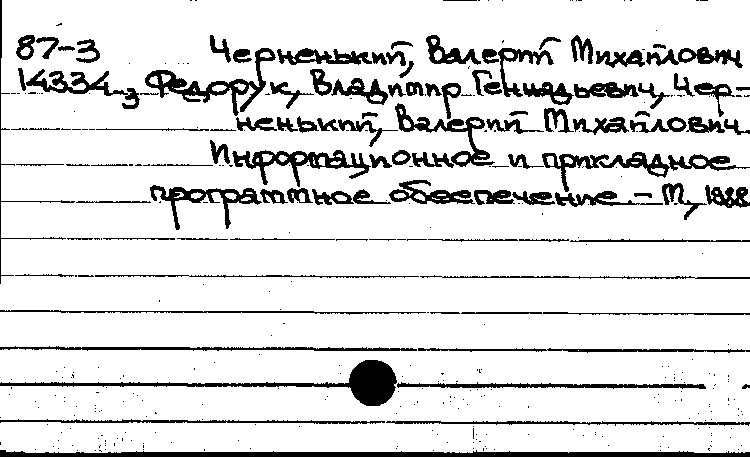 87-3 Черненький, Валерий Михайлович
14334-3 Федорук, Владимир Геннадьевич, Чер-
ненький, Валерий Михайлович
Информационное и прикладное
программное обеспечение. - М., 1988